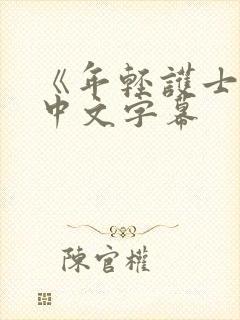 《年轻護士
中文字幕
陳官權